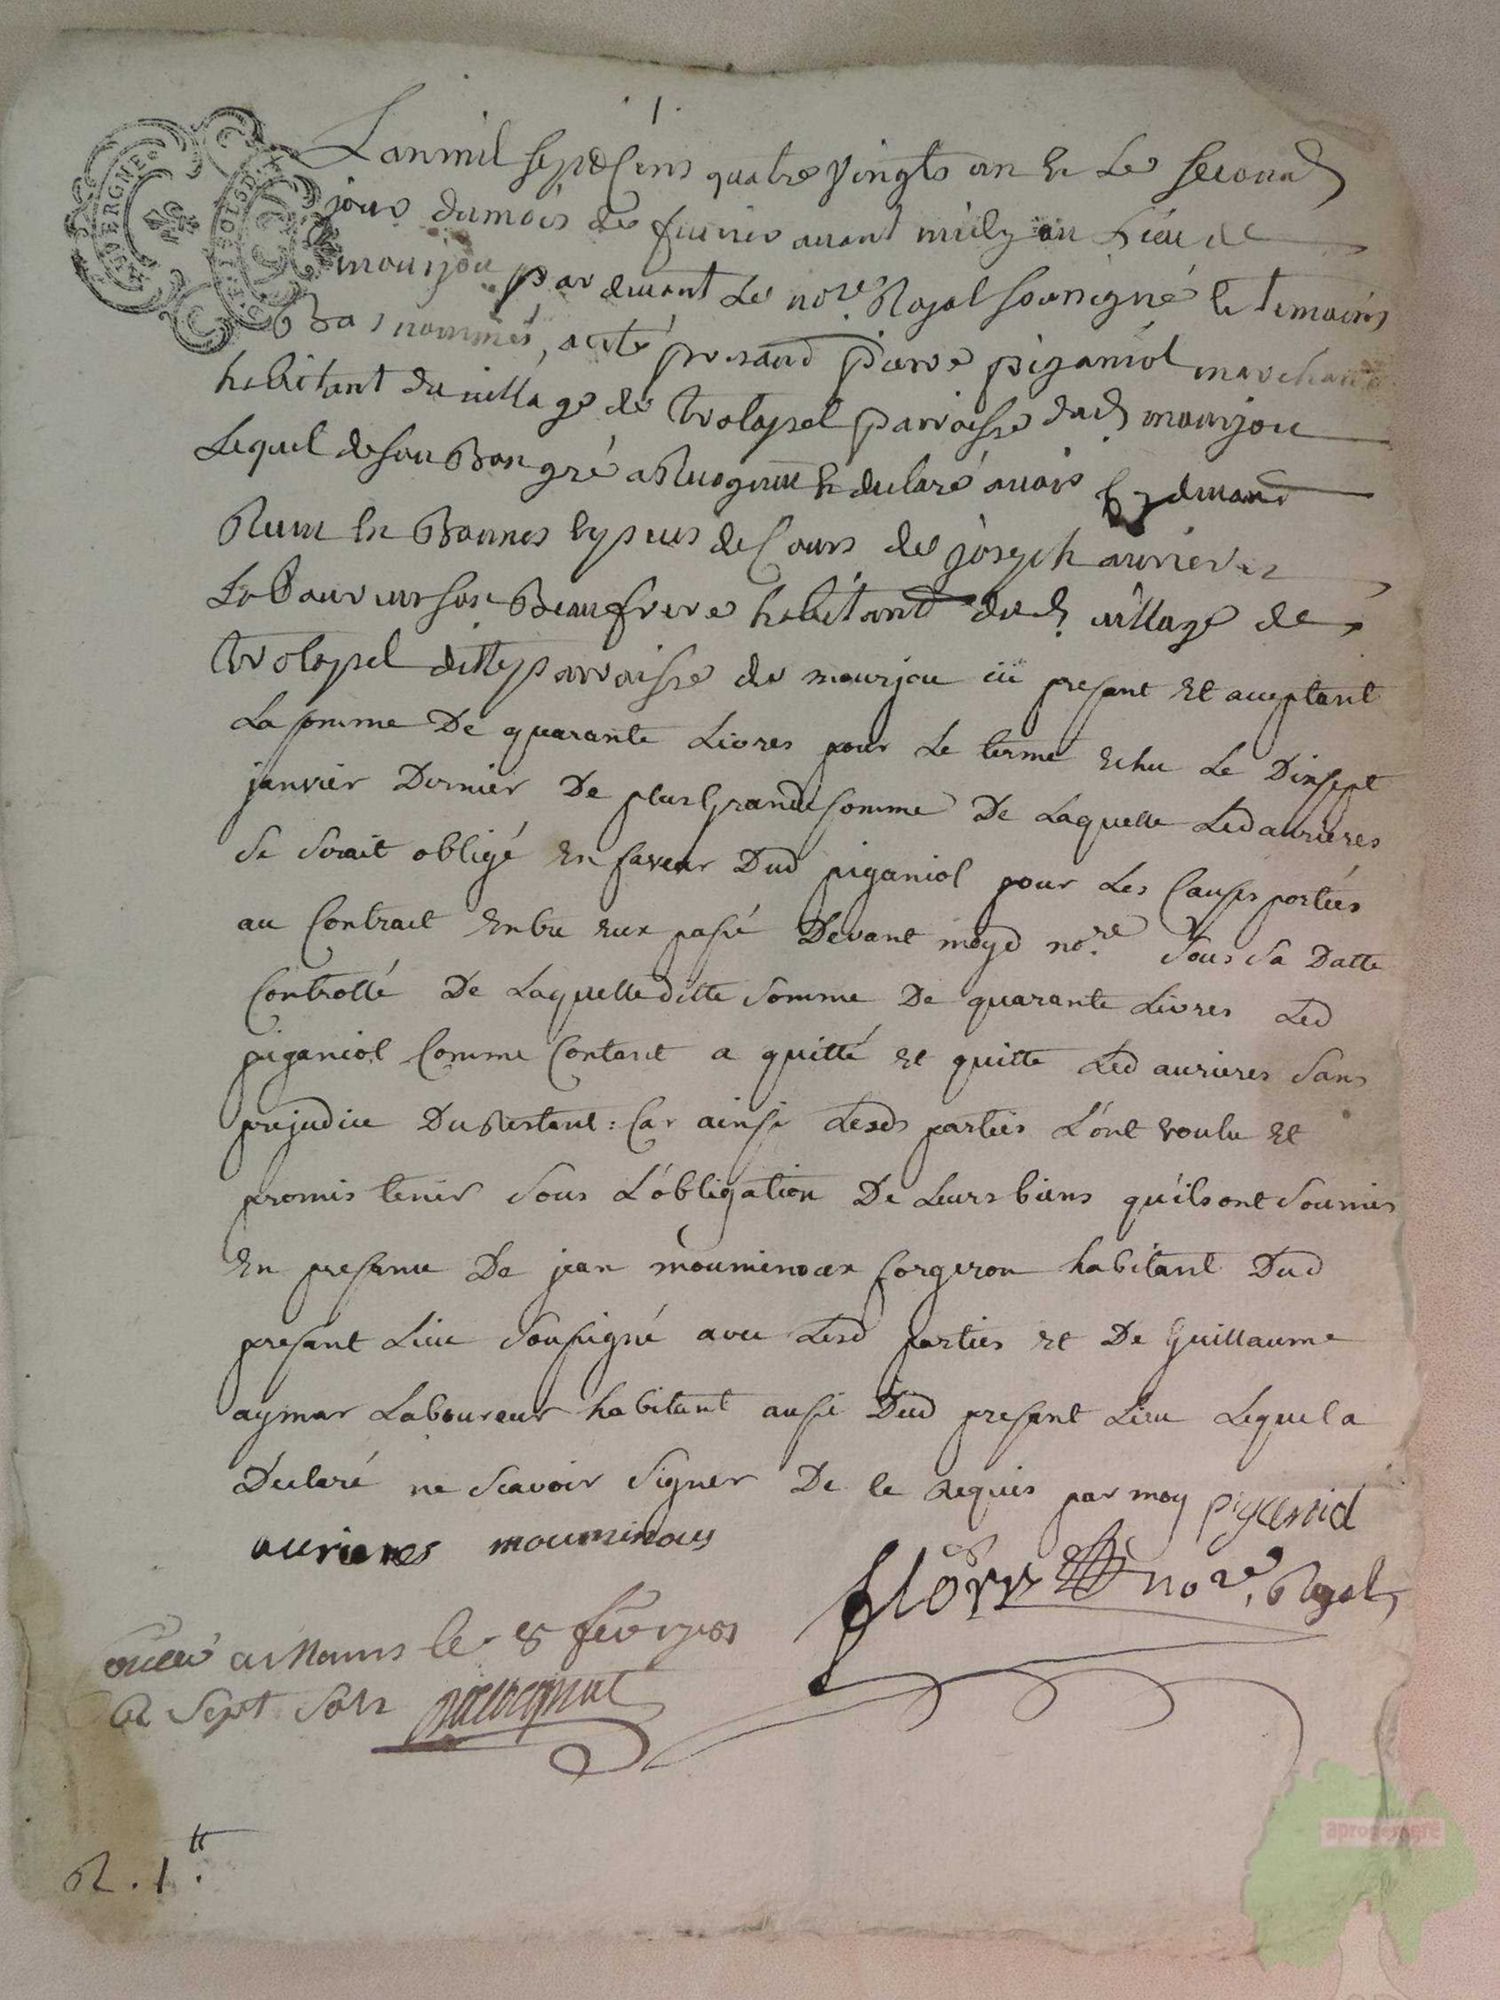 1.
AUVERGNE
Lan mil sept Cens quatre vingts un & le second
jour du mois de fevrier avant midy au Lieu de
mourjou par devant Le no.re Royal soussigné & temoins
Bas nommés, a eté presand pierre piganiol marchand
habitant du village de trolapel parroisse dud. mourjou
Lequel de son Bon gré a Recognu & declaré avoir Cy devant
Reçu en Bonnes especes de Cours de joseph aurieres
Laboureur son Beaufrere habitant dud. village de
trolapel ditte parroisse de mourjou icy presant et aceptant
La somme De quarante Livres pour Le terme echu Le Dixsept
janvier Dernier De plus Grande somme De Laquelle Led aurieres
se serait obligé en faveur Dud piganiol pour Les Causes portées
au Contract entre eux passé Devant moyd no.re sous sa Datte
Controllé De Laquelle ditte somme De quarante Livres Led
piganiol Comme Contant a quitté et quitte Led aurieres sans
prejudice Du Restant : Car ainsi Lesds parties L'ont voulu et
promis tenir sous L'obligation De Leurs biens qu'ils ont soumis
en presence De jean mouminoux forgeron habitant Dud
presant Lieu soussigné avec Lesd parties et De Guillaume
aymar Laboureur habitant aussi Dud presant Lieu Lequel a
Declaré ne scavoir signer De ce Requis par moy piganiol
aurieres mouminous
flory no.re Royal
a Maurs le 8 fev 1781
R sept sols
R. 1.tt
aprogemere